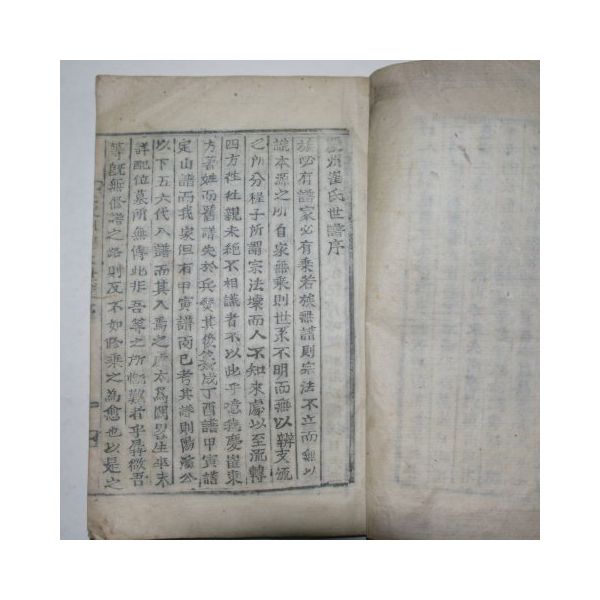 慶州崔氏世譜序
族必有譜家必有乘若族無譜則宗法不立而無以
識本源之所自家無乘則世系不明而無以辨支派
之所分程子所謂宗法壞而人不知來處以至流轉
四方性性親未絶不相識者不以此乎噫我慶崔東
方著姓而舊譜失於兵燹其後 成丁酉譜甲寅譜
定山譜而我家但有甲寅譜而已考其譜則陽 公
以下五六代入譜而其入焉之 太爲闊畧生卒未
詳配位墓所無傳此非吾等之所慨 者乎 微吾
等旣無修譜之路則反不如修乘之為愈也以是之